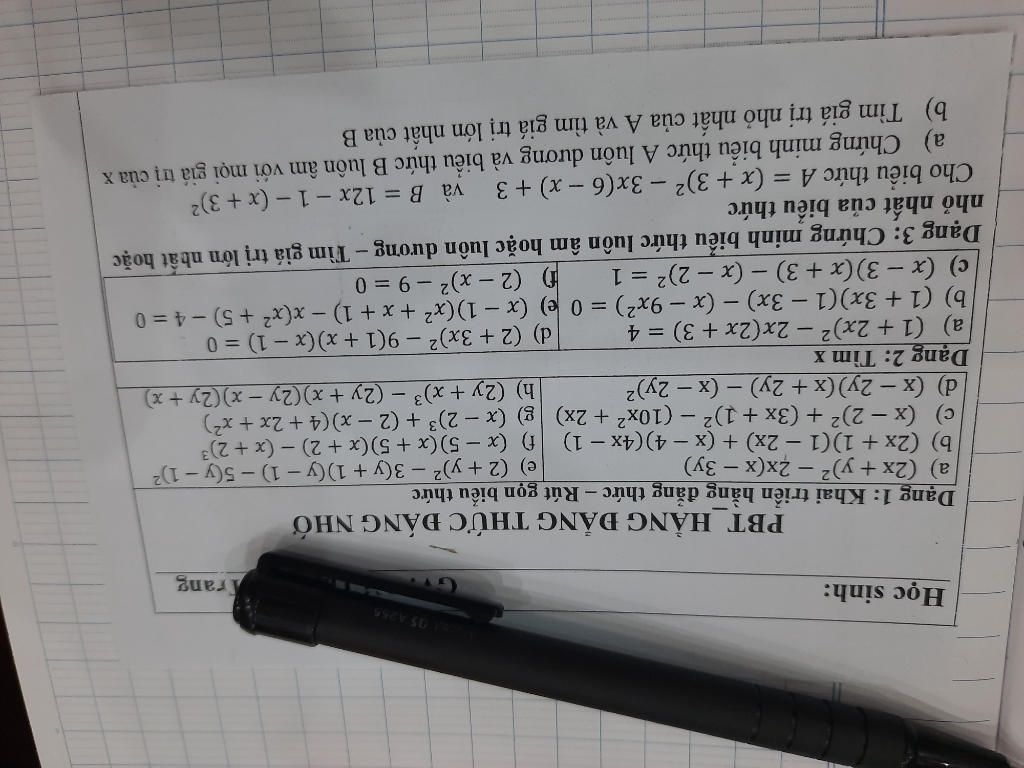 Học sinh:
GV: Trang
PBT_HẰNG ĐẲNG THỨC ĐÁNG NHỚ
Dạng 1: Khai triển hằng đẳng thức – Rút gọn biểu thức
a) (2x + y)² − 2x(x − 3y)
e) (2 + y)² − 3(y + 1)(y − 1) − 5(y − 1)²
b) (2x + 1)(1 − 2x) + (x − 4)(4x − 1)
f) (x − 5)(x + 5)(x + 2) − (x + 2)³
c) (x − 2)² + (3x + 1)² − (10x² + 2x)
g) (x − 2)³ + (2 − x)(4 + 2x + x²)
d) (x − 2y)(x + 2y) − (x − 2y)²
h) (2y + x)³ − (2y + x)(2y − x)(2y + x)
Dạng 2: Tìm x
a) (1 + 2x)² − 2x(2x + 3) = 4
d) (2 + 3x)² − 9(1 + x)(x − 1) = 0
b) (1 + 3x)(1 − 3x) − (x − 9x²) = 0
e) (x − 1)(x² + x + 1) − x(x² + 5) − 4 = 0
c) (x − 3)(x + 3) − (x − 2)² = 1
f) (2 − x)² − 9 = 0
Dạng 3: Chứng minh biểu thức luôn âm hoặc luôn dương – Tìm giá trị lớn nhất hoặc
nhỏ nhất của biểu thức
Cho biểu thức A = (x + 3)² − 3x(6 − x) + 3 và B = 12x − 1 − (x + 3)²
a) Chứng minh biểu thức A luôn dương và biểu thức B luôn âm với mọi giá trị của x
b) Tìm giá trị nhỏ nhất của A và tìm giá trị lớn nhất của B